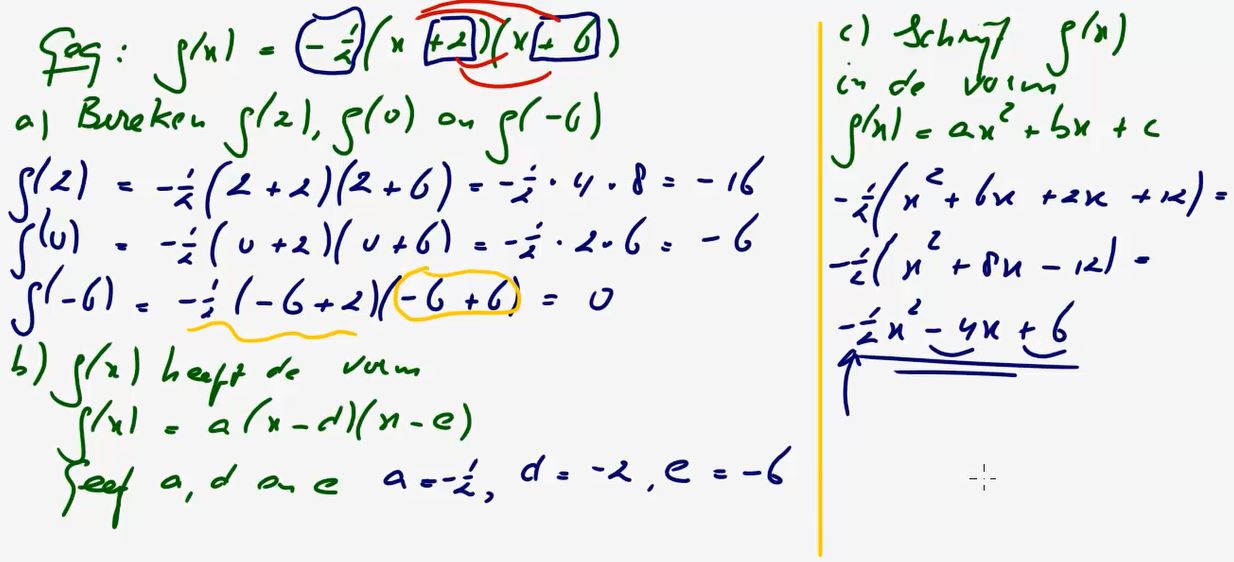 Geg: g(x) = -½(x+2)(x+6)
a) Bereken g(2), g(0) en g(-6)
g(2) = -½(2+2)(2+6) = -½·4·8 = -16
g(0) = -½(0+2)(0+6) = -½·2·6 = -6
g(-6) = -½(-6+2)(-6+6) = 0
b) g(x) heeft de vorm
g(x) = a(x-d)(x-e)
Geef a, d en e a=-½, d=-2, e=-6
c) Schrijf g(x)
in de vorm
g(x) = ax² + bx + c
-½(x² + 6x + 2x + 12) =
-½(x² + 8x - 12) =
-½x² - 4x + 6